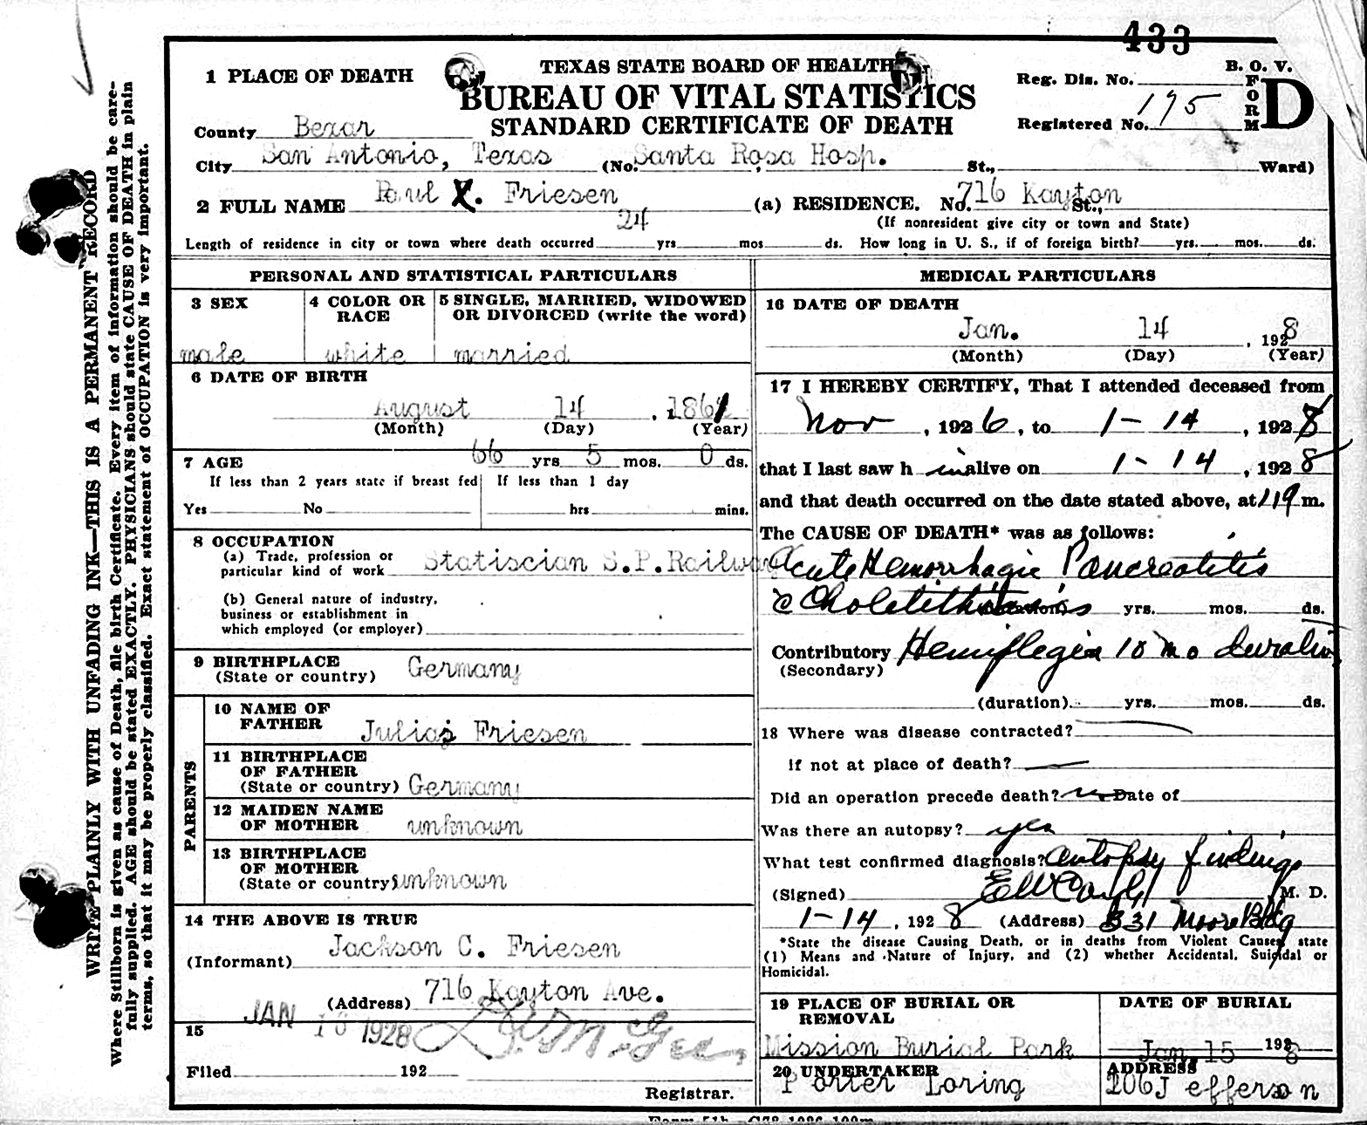 433
1 PLACE OF DEATH
TEXAS STATE BOARD OF HEALTH
BUREAU OF VITAL STATISTICS
STANDARD CERTIFICATE OF DEATH
B. O. V.
FORM D
Reg. Dis. No.
Registered No. 195
County Bexar
City San Antonio, Texas (No. Santa Rosa Hosp. St., Ward)
2 FULL NAME Paul F. Friesen (a) RESIDENCE. No. 716 Kayton St.,
(If nonresident give city or town and State)
Length of residence in city or town where death occurred 24 yrs mos ds. How long in U. S., if of foreign birth? yrs. mos. ds.
PERSONAL AND STATISTICAL PARTICULARS
3 SEX
male
4 COLOR OR RACE
white
5 SINGLE, MARRIED, WIDOWED OR DIVORCED (write the word)
married
6 DATE OF BIRTH
August 14 , 1861
(Month) (Day) (Year)
7 AGE 66 yrs 5 mos. 0 ds.
If less than 2 years state if breast fed
If less than 1 day
Yes No hrs mins.
8 OCCUPATION
(a) Trade, profession or
particular kind of work Statiscian S.P.Railway
(b) General nature of industry,
business or establishment in
which employed (or employer)
9 BIRTHPLACE
(State or country) Germany
PARENTS
10 NAME OF
FATHER Julias Friesen
11 BIRTHPLACE
OF FATHER
(State or country) Germany
12 MAIDEN NAME
OF MOTHER unknown
13 BIRTHPLACE
OF MOTHER
(State or country) unknown
14 THE ABOVE IS TRUE
(Informant) Jackson C. Friesen
(Address) 716 Kayton Ave.
15
JAN 1928
Filed 192
Registrar.
MEDICAL PARTICULARS
16 DATE OF DEATH
Jan. 14 , 1928
(Month) (Day) (Year)
17 I HEREBY CERTIFY, That I attended deceased from
Nov , 1926, to 1-14 , 1928
that I last saw h im alive on 1-14 , 1928
and that death occurred on the date stated above, at m.
The CAUSE OF DEATH* was as follows:
Acute Hemorrhagic Pancreatitis
yrs. mos. ds.
Contributory Hemiplegia 10 mo duration
(Secondary)
(duration) yrs. mos. ds.
18 Where was disease contracted?
If not at place of death?
Did an operation precede death? no Date of
Was there an autopsy? yes
What test confirmed diagnosis? Autopsy findings
(Signed) M. D.
1-14 , 1928 (Address) 331 Moore Bldg
*State the disease Causing Death, or in deaths from Violent Causes, state
(1) Means and Nature of Injury, and (2) whether Accidental, Suicidal or
Homicidal.
19 PLACE OF BURIAL OR
REMOVAL
Mission Burial Park
DATE OF BURIAL
Jan. 15 1928
20 UNDERTAKER
Porter Loring
ADDRESS
206 Jefferson
WRITE PLAINLY WITH UNFADING INK—THIS IS A PERMANENT RECORD
Where Stillborn is given as cause of Death, file birth Certificate. Every item of information should be care-
fully supplied. AGE should be stated EXACTLY. PHYSICIANS should state CAUSE OF DEATH in plain
terms, so that it may be properly classified. Exact statement of OCCUPATION is very important.